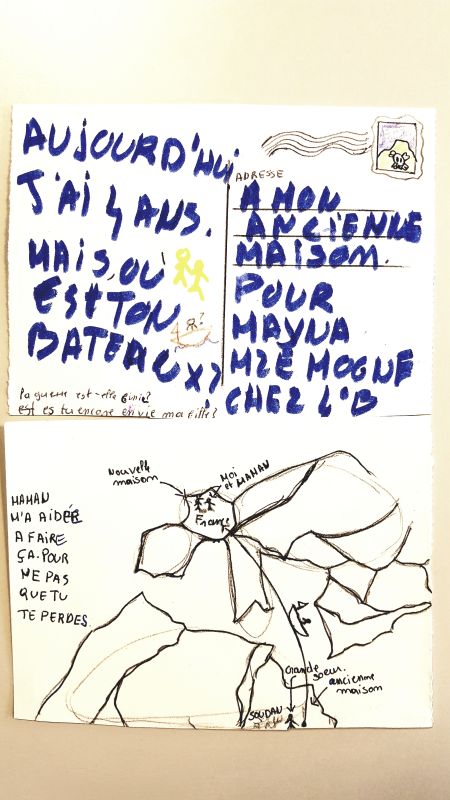 AUJOURD'HUI
J'AI 4 ANS.
MAIS, OÙ
EST TON
BATEAU X?
?
La guerre est-elle finie?
est es tu encore en vie ma fille?
ADRESSE
A MON
ANCIENNE
MAISON.
POUR
MAYNA
MZE MOGNE
CHEZ L'B
Nouvelle
maison
Moi
et MAMAN
France
MAMAN
M'A AIDÉE
A FAIRE
ÇA. POUR
NE PAS
QUE TU
TE PERDES.
Grande
soeur.
ancienne
maison
SOUDAN